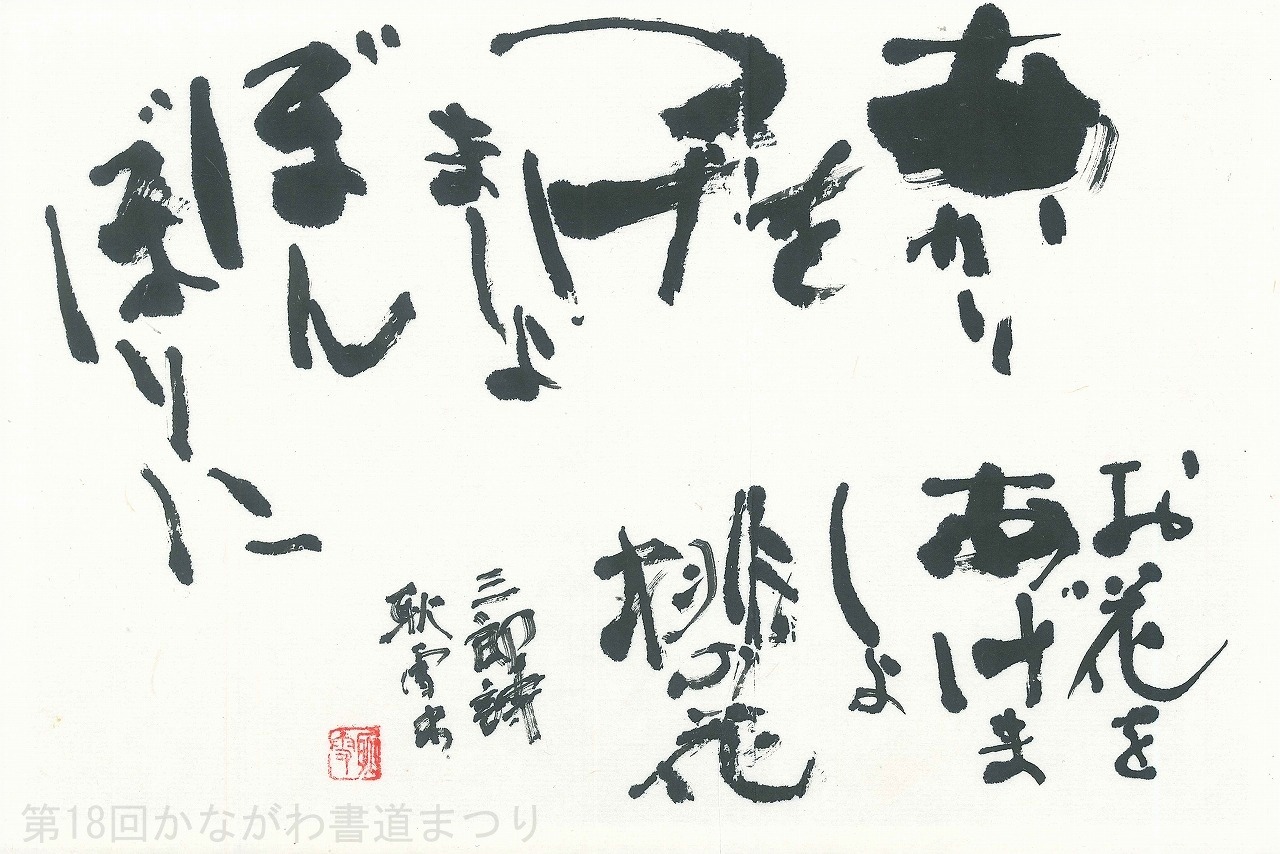 あかり
を
つけ
ましょ
ぼん
ぼりに
お花を
あげま
しょ
桃の花
三郎詩
第18回かながわ書道まつり